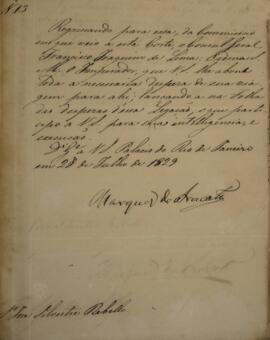 N. 13
Regressando para essa, da Commissão
em que veio a esta Corte, o Consul Geral
Francisco Joaquim de Lima; Ordena
S. M. O Imperador, que V. S. lhe abone
toda a necessaria despeza de sua via
gem para ahi; lançando-a na folha
das despezas dessa Legação, o que parti
cipo a V. S. para sua intelligencia, e
execução.
D.s G.e a V. S. Palacio do Rio de Janeiro
em 28 de Julho de 1829
Marquez de Aracaty
Silvestre Rebello